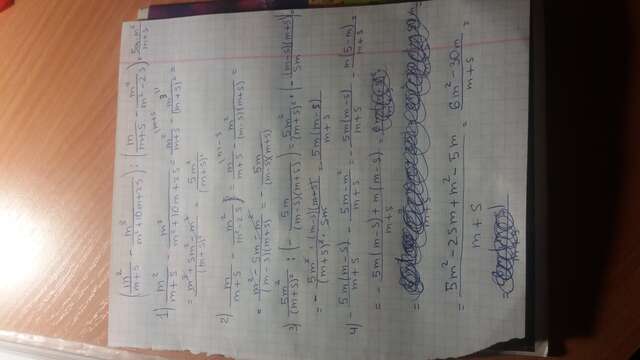 (m²/(m+5) − m³/(m²+10m+25)) : (m/(m+5) − m²/(m²−25)) · (5m−m²)/(m+5)
1) m²/(m+5) − m³/(m²+10m+25) = m²/(m+5) − m³/(m+5)² =
= (m³+5m²−m³)/(m+5)² = 5m²/(m+5)²
2) m/(m+5) − m²/(m²−25) = m/(m+5) − m²/((m−5)(m+5)) =
= (m²−5m−m²)/((m−5)(m+5)) = − 5m/((m−5)(m+5))
3) 5m²/(m+5)² : (− 5m/((m−5)(m+5))) = 5m²/(m+5)² · (− (m−5)(m+5)/5m) =
= − 5m²·(m−5)(m+5)/((m+5)²·5m) = 5m(m−5)/(m+5)
4) − 5m(m−5)/(m+5) − (5m−m²)/(m+5) = − 5m(m−5)/(m+5) − m(5−m)/(m+5) =
= − (5m(m−5)+m(m−5))/(m+5) =
=
= (5m²−25m+m²−5m)/(m+5) = (6m²−30m)/(m+5) =
=